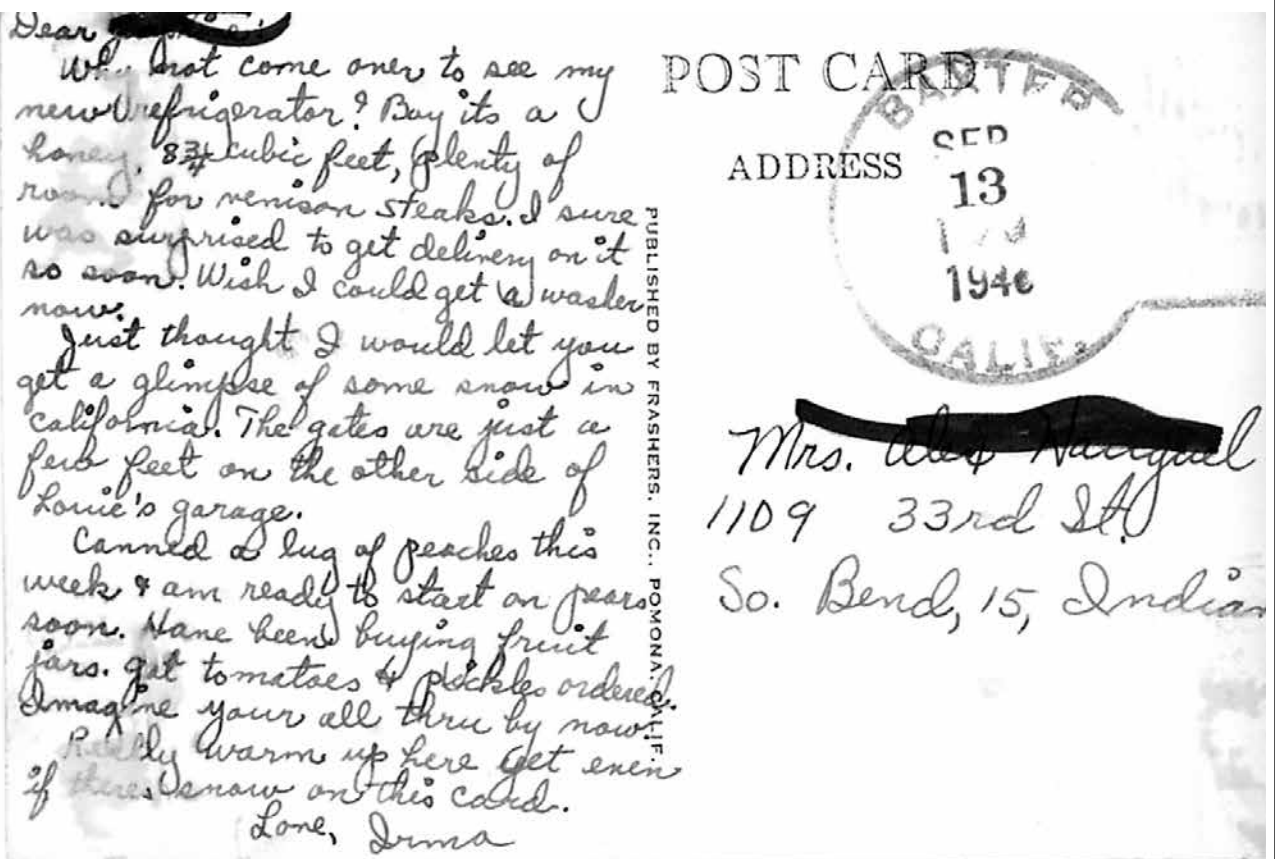 Dear
Why not come over to see my
new refrigerator? Boy its a
honey, 8 3/4 cubic feet, plenty of
room for venison steaks. I sure
was surprised to get delivery on it
so soon. Wish I could get a washer
now.
Just thought I would let you
get a glimpse of some snow in
California. The gates are just a
few feet on the other side of
Louie's garage.
Canned a lug of peaches this
week & am ready to start on pears
soon. Have been buying fruit
jars. got tomatoes & pickles ordered.
Imagine your all thru by now.
Really warm up here yet even
if theres snow on this card.
Love, Irma
PUBLISHED BY FRASHERS, INC., POMONA, CALIF.
POST CARD
ADDRESS
BAXTER
SEP
13
PM
1946
CALIF.
Mrs. Alex
1109 33rd St.
So. Bend, 15, Indian